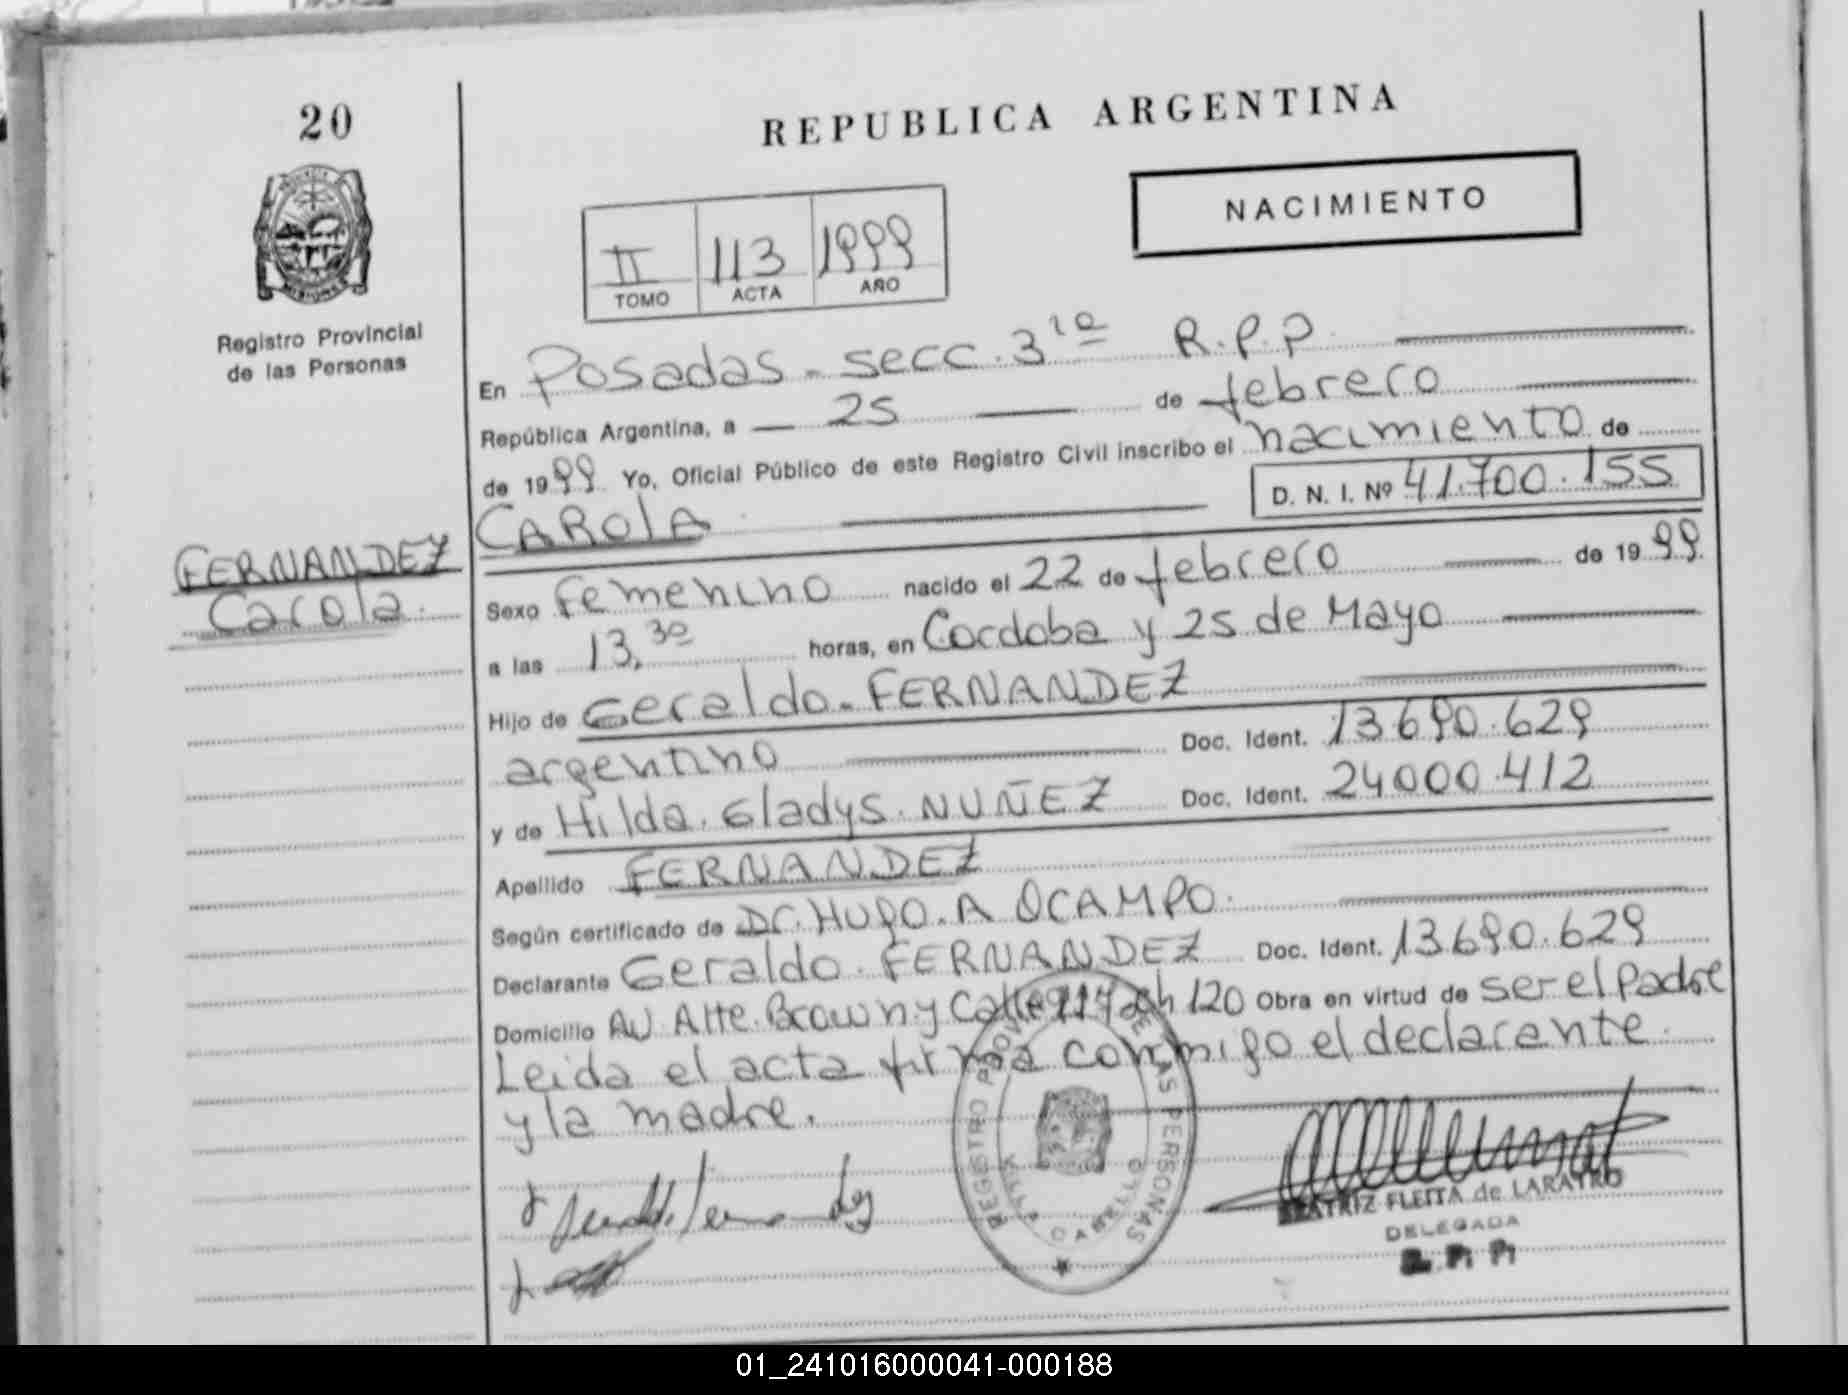 20
REPUBLICA ARGENTINA
NACIMIENTO
II 113 1999
TOMO ACTA AÑO
Registro Provincial
de las Personas
En Posadas - secc. 3ra R.P.P
República Argentina, a 25 de febrero
de 1999 Yo, Oficial Público de este Registro Civil inscribo el nacimiento de
D. N. I. Nº 41.700.155
FERNANDEZ
Carola.
CAROLA
Sexo Femenino nacido el 22 de febrero de 1999.
a las 13,30 horas, en Cordoba y 25 de Mayo
Hijo de Geraldo. FERNANDEZ
argentino Doc. Ident. 13690.629
y de Hilda. Gladys. NUÑEZ Doc. Ident. 24000.412
Apellido FERNANDEZ
Según certificado de Dr. HUGO. A OCAMPO.
Declarante Geraldo. FERNANDEZ Doc. Ident. 13690.629
Domicilio AV Alte. Brown y Calle 117 ch 120 Obra en virtud de ser el padre
Leida el acta firma conmigo el declarante
y la madre.
REGISTRO PROVINCIAL DE LAS PERSONAS
VILLA CABELLO
BEATRIZ FLEITA de LARATRO
DELEGADA
R. P. P.
01_241016000041-000188